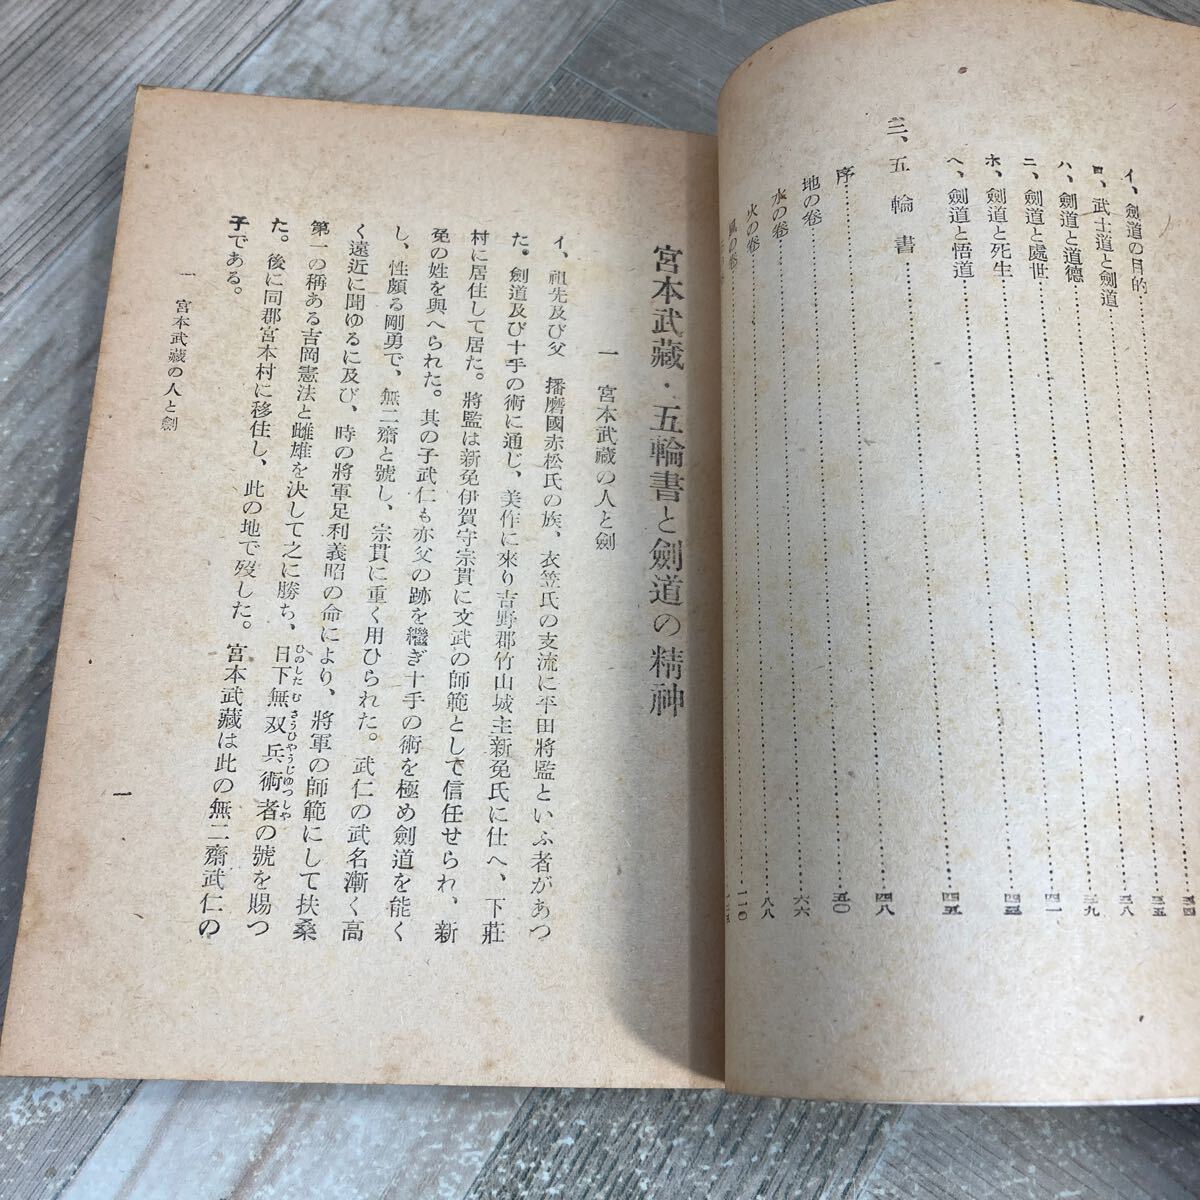 イ、劍道の目的
ロ、武士道と劍道
ハ、劍道と道德
ニ、劍道と處世
ホ、劍道と死生
ヘ、劍道と悟道
三、五輪書
序
地の卷
水の卷
火の卷
風の卷
三四
三五
三八
三九
四一
四三
四五
四八
五〇
六六
八八
一一〇
宮本武藏・五輪書と劍道の精神
一 宮本武藏の人と劍
イ、祖先及び父 播磨國赤松氏の族、衣笠氏の支流に平田將監といふ者があつ
た。劍道及び十手の術に通じ、美作に來り吉野郡竹山城主新免氏に仕へ、下莊
村に居住して居た。將監は新免伊賀守宗貫に文武の師範として信任せられ、新
免の姓を與へられた。其の子武仁も亦父の跡を繼ぎ十手の術を極め劍道を能く
し、性頗る剛勇で、無二齋と號し、宗貫に重く用ひられた。武仁の武名漸く高
く遠近に聞ゆるに及び、時の將軍足利義昭の命により、將軍の師範にして扶桑
第一の稱ある吉岡憲法と雌雄を決して之に勝ち、日下無双兵術者の號を賜つ
ひのしたむさうひやうじゆつしや
た。後に同郡宮本村に移住し、此の地で歿した。宮本武藏は此の無二齋武仁の
子である。
一 宮本武藏の人と劍
一